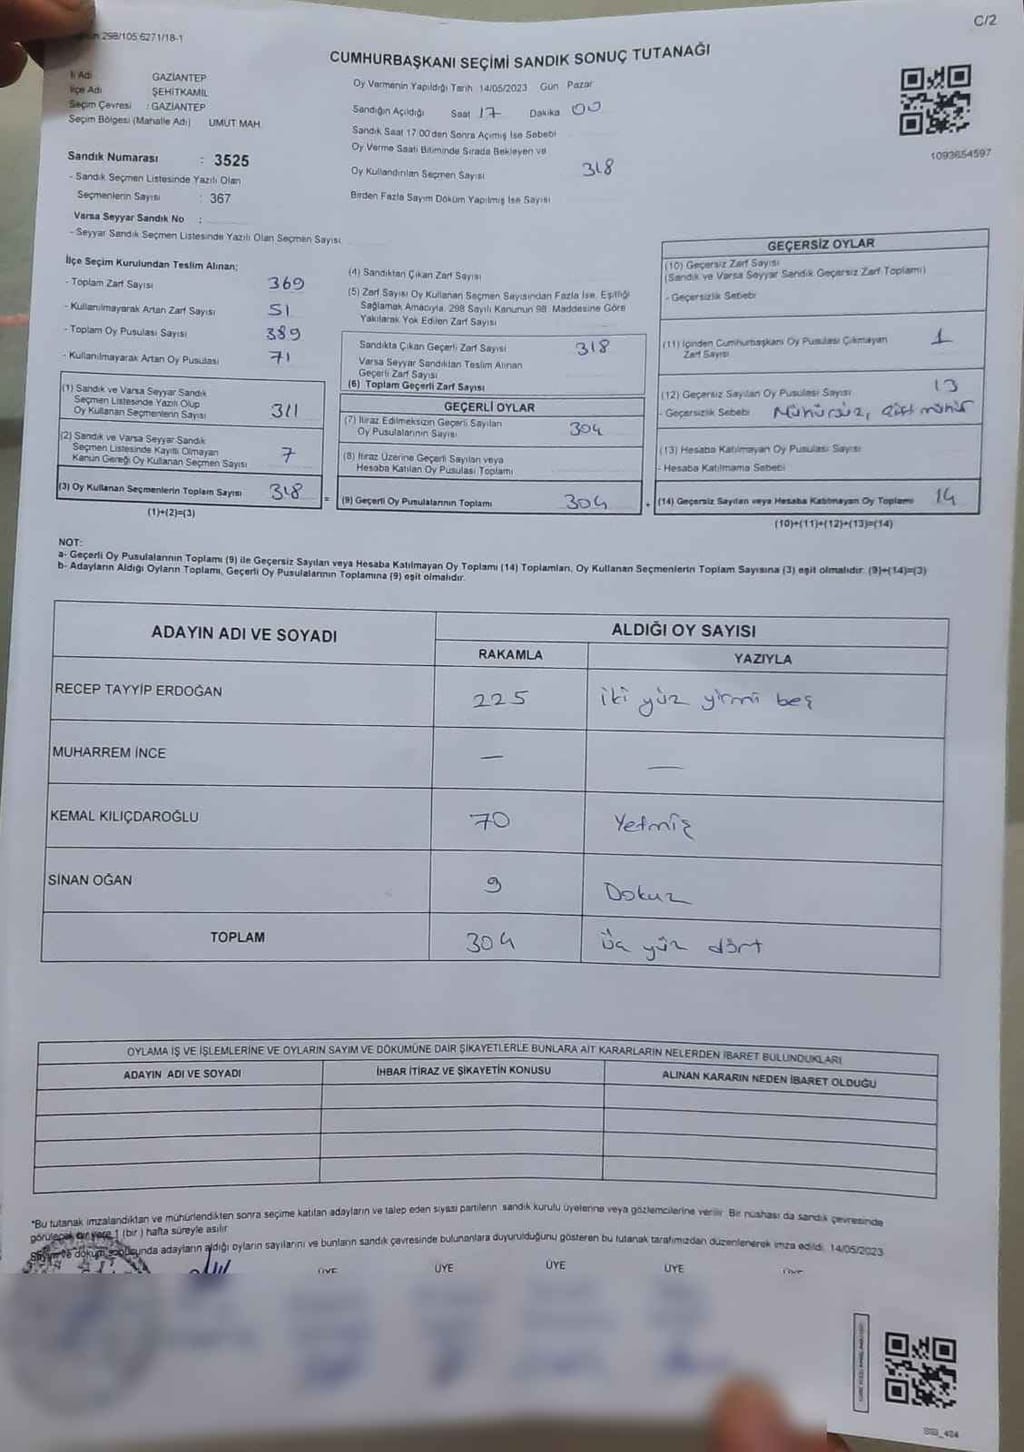 298/105.6271/18-1
C/2
CUMHURBAŞKANI SEÇİMİ SANDIK SONUÇ TUTANAĞI
İl Adı GAZİANTEP
İlçe Adı ŞEHİTKAMİL
Seçim Çevresi : GAZİANTEP
Seçim Bölgesi (Mahalle Adı) UMUT MAH.
Sandık Numarası : 3525
- Sandık Seçmen Listesinde Yazılı Olan
Seçmenlerin Sayısı : 367
Varsa Seyyar Sandık No :
- Seyyar Sandık Seçmen Listesinde Yazılı Olan Seçmen Sayısı
Oy Vermenin Yapıldığı Tarih 14/05/2023 Gün Pazar
Sandığın Açıldığı Saat 17 Dakika 00
Sandık Saat 17.00'den Sonra Açımış İse Sebebi
Oy Verme Saati Bitiminde Sırada Bekleyen ve
Oy Kullandırılan Seçmen Sayısı 318
Birden Fazla Sayım Döküm Yapılmış İse Sayısı
1093654597
İlçe Seçim Kurulundan Teslim Alınan;
- Toplam Zarf Sayısı 369
- Kullanılmayarak Artan Zarf Sayısı 51
- Toplam Oy Pusulası Sayısı 389
- Kullanılmayarak Artan Oy Pusulası 71
(1) Sandık ve Varsa Seyyar Sandık
Seçmen Listesinde Yazılı Olup
Oy Kullanan Seçmenlerin Sayısı 311
(2) Sandık ve Varsa Seyyar Sandık
Seçmen Listesinde Kayıtlı Olmayan
Kanun Gereği Oy Kullanan Seçmen Sayısı 7
(3) Oy Kullanan Seçmenlerin Toplam Sayısı 318
(1)+(2)=(3)
=
(4) Sandıktan Çıkan Zarf Sayısı
(5) Zarf Sayısı Oy Kullanan Seçmen Sayısından Fazla İse, Eşitliği
Sağlamak Amacıyla, 298 Sayılı Kanunun 98. Maddesine Göre
Yakılarak Yok Edilen Zarf Sayısı
Sandıkta Çıkan Geçerli Zarf Sayısı 318
Varsa Seyyar Sandıktan Teslim Alınan
Geçerli Zarf Sayısı
(6) Toplam Geçerli Zarf Sayısı
GEÇERLİ OYLAR
(7) İtiraz Edilmeksizin Geçerli Sayılan
Oy Pusulalarının Sayısı 304
(8) İtiraz Üzerine Geçerli Sayılan veya
Hesaba Katılan Oy Pusulası Toplamı
(9) Geçerli Oy Pusulalarının Toplamı 304
+
GEÇERSİZ OYLAR
(10) Geçersiz Zarf Sayısı
(Sandık ve Varsa Seyyar Sandık Geçersiz Zarf Toplamı)
- Geçersizlik Sebebi
(11) İçinden Cumhurbaşkanı Oy Pusulası Çıkmayan
Zarf Sayısı 1
(12) Geçersiz Sayılan Oy Pusulası Sayısı 13
- Geçersizlik Sebebi Mühürsüz, çift mühür
(13) Hesaba Katılmayan Oy Pusulası Sayısı
- Hesaba Katılmama Sebebi
(14) Geçersiz Sayılan veya Hesaba Katılmayan Oy Toplamı 14
(10)+(11)+(12)+(13)=(14)
NOT:
a- Geçerli Oy Pusulalarının Toplamı (9) ile Geçersiz Sayılan veya Hesaba Katılmayan Oy Toplamı (14) Toplamları, Oy Kullanan Seçmenlerin Toplam Sayısına (3) eşit olmalıdır. (9)+(14)=(3)
b- Adayların Aldığı Oyların Toplamı, Geçerli Oy Pusulalarının Toplamına (9) eşit olmalıdır.
ADAYIN ADI VE SOYADI ALDIĞI OY SAYISI
RAKAMLA YAZIYLA
RECEP TAYYİP ERDOĞAN 225 iki yüz yirmi beş
MUHARREM İNCE — —
KEMAL KILIÇDAROĞLU 70 Yetmiş
SİNAN OĞAN 9 Dokuz
TOPLAM 304 üç yüz dört
OYLAMA İŞ VE İŞLEMLERİNE VE OYLARIN SAYIM VE DÖKÜMÜNE DAİR ŞİKAYETLERLE BUNLARA AİT KARARLARIN NELERDEN İBARET BULUNDUKLARI
ADAYIN ADI VE SOYADI İHBAR İTİRAZ VE ŞİKAYETİN KONUSU ALINAN KARARIN NEDEN İBARET OLDUĞU
*Bu tutanak imzalandıktan ve mühürlendikten sonra seçime katılan adayların ve talep eden siyasi partilerin sandık kurulu üyelerine veya gözlemcilerine verilir. Bir nüshası da sandık çevresinde
görülecek bir yere 1 (bir) hafta süreyle asılır.
Sayım ve döküm sonucunda adayların aldığı oyların sayılarını ve bunların sandık çevresinde bulunanlara duyurulduğunu gösteren bu tutanak tarafımızdan düzenlenerek imza edildi. 14/05/2023
ÜYE ÜYE ÜYE ÜYE ÜYE